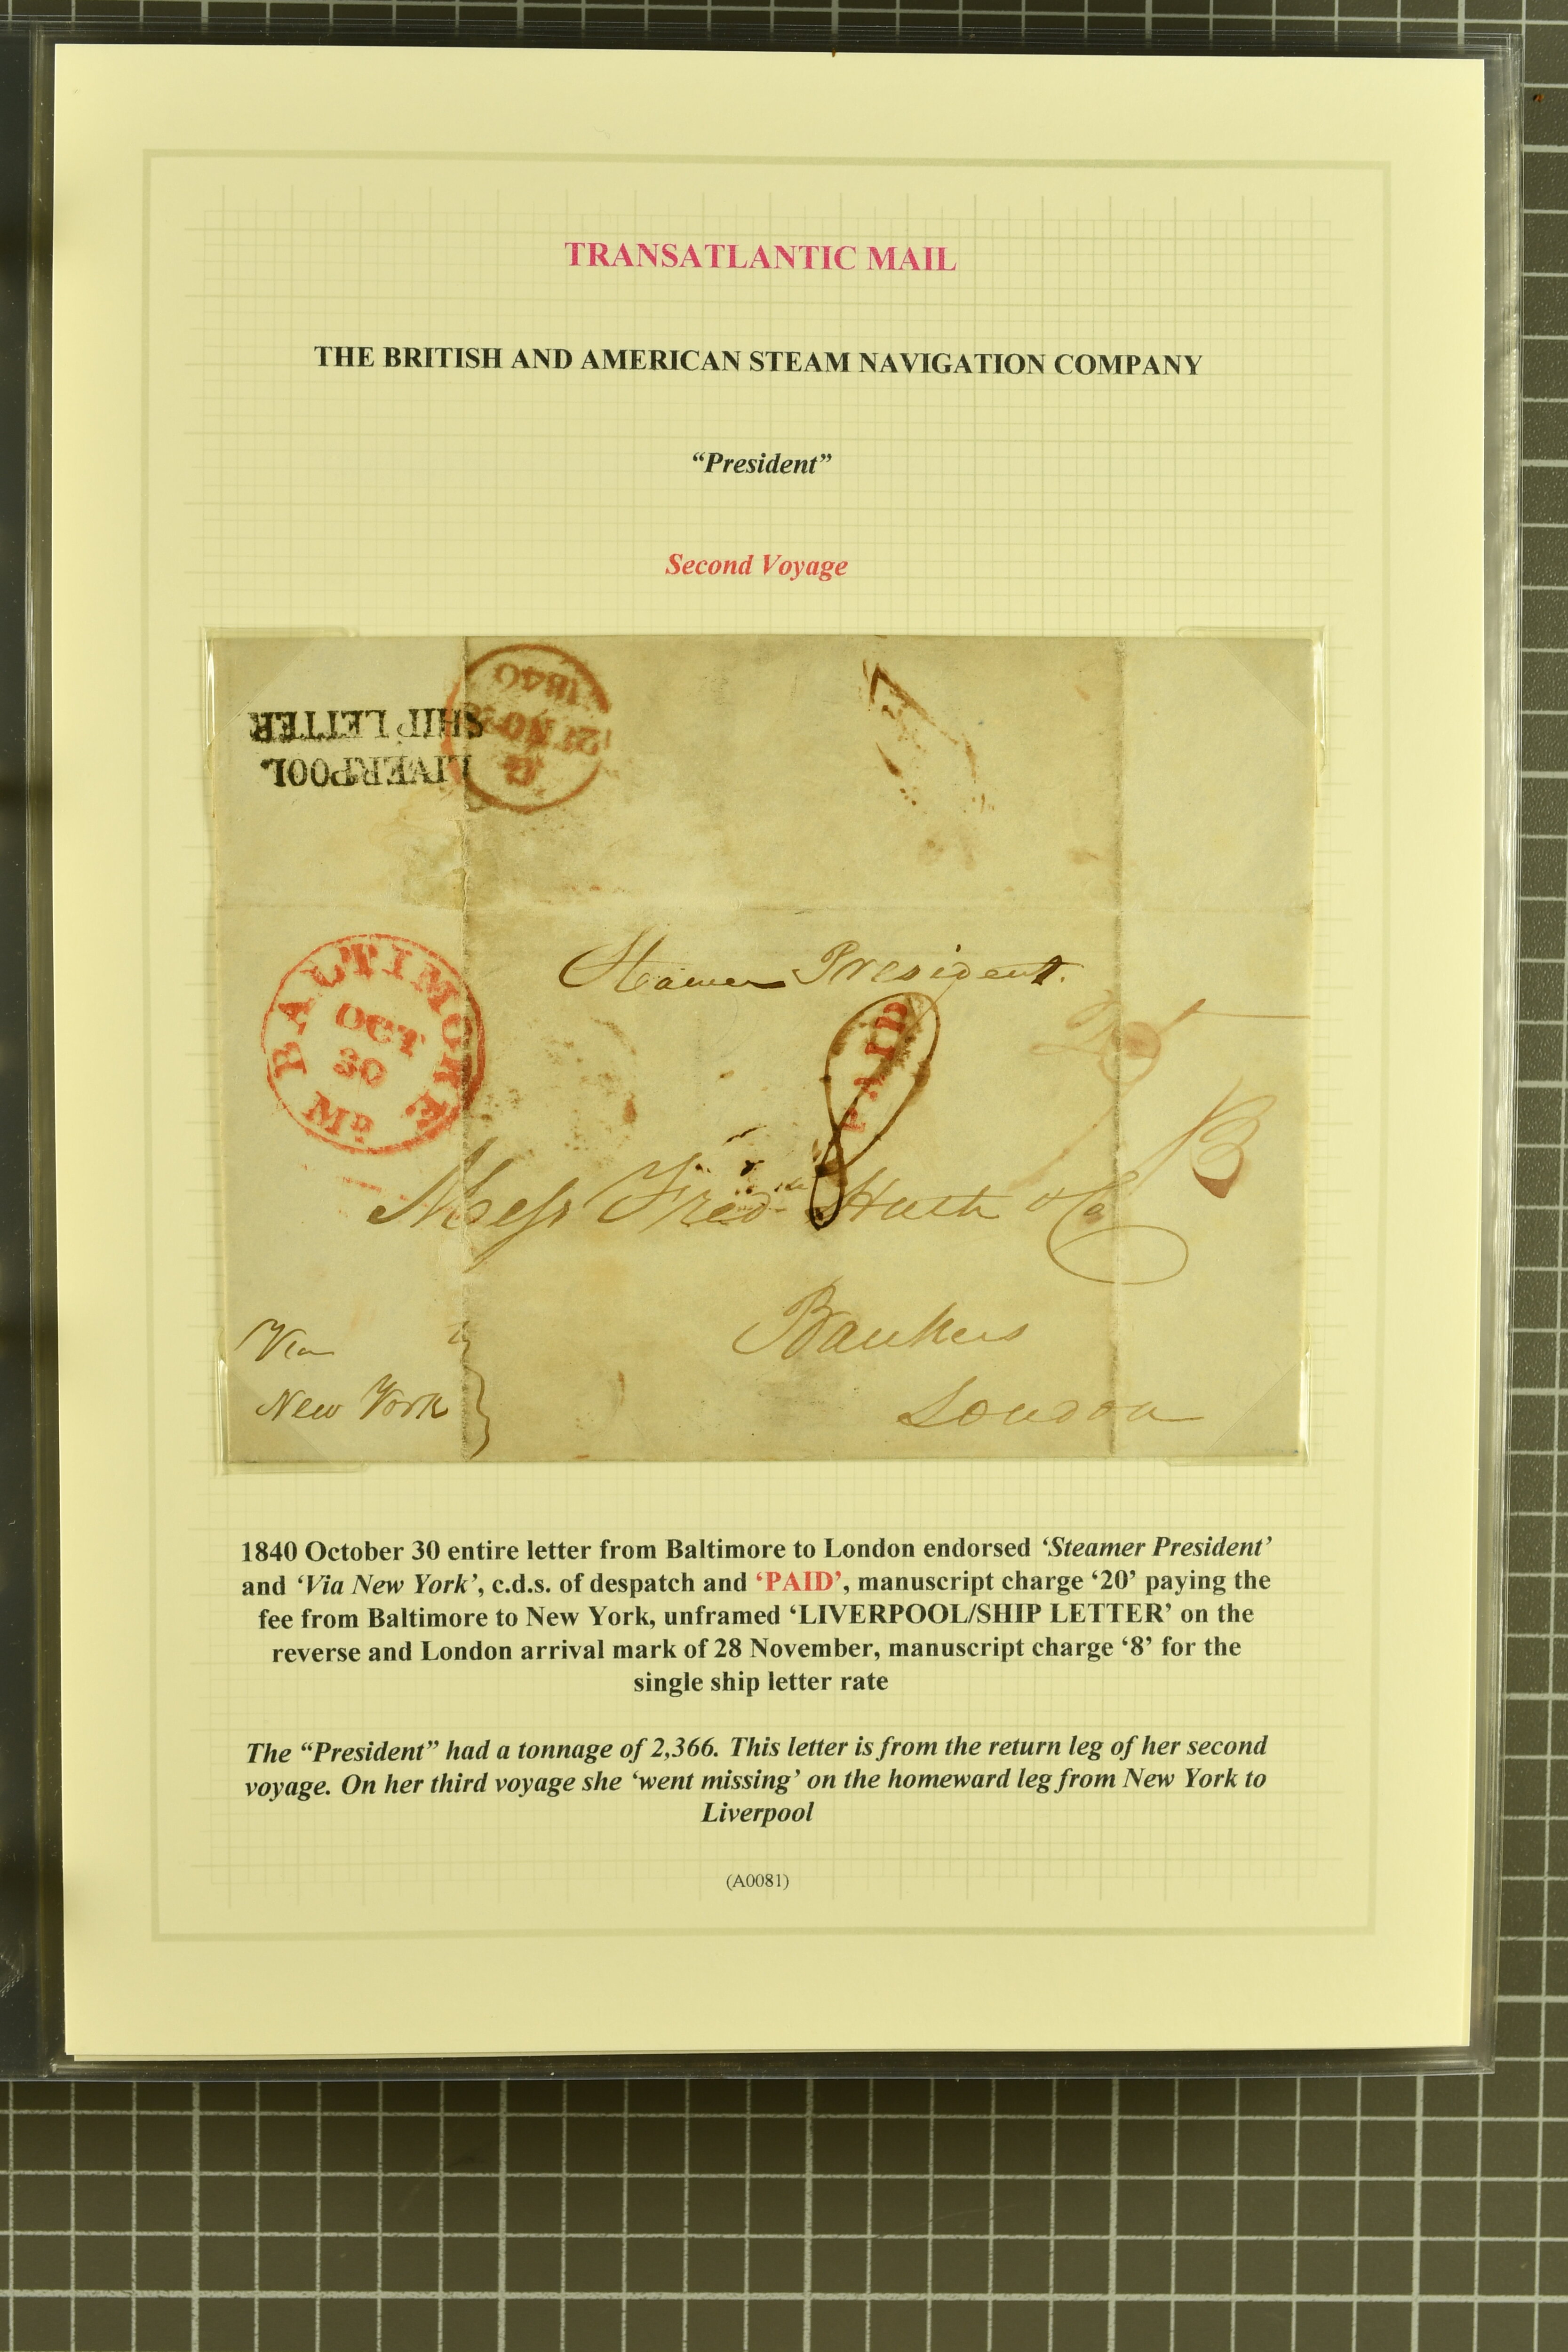 TRANSATLANTIC MAIL
THE BRITISH AND AMERICAN STEAM NAVIGATION COMPANY
“President”
Second Voyage
LIVERPOOL
SHIP LETTER
1840
Steamer President.
PAID
BALTIMORE
OCT
30
Md
8
Messrs Fredk Huth & Co
Bankers
London
Via
New York
1840 October 30 entire letter from Baltimore to London endorsed ‘Steamer President’
and ‘Via New York’, c.d.s. of despatch and ‘PAID’, manuscript charge ‘20’ paying the
fee from Baltimore to New York, unframed ‘LIVERPOOL/SHIP LETTER’ on the
reverse and London arrival mark of 28 November, manuscript charge ‘8’ for the
single ship letter rate
The “President” had a tonnage of 2,366. This letter is from the return leg of her second
voyage. On her third voyage she ‘went missing’ on the homeward leg from New York to
Liverpool
(A0081)